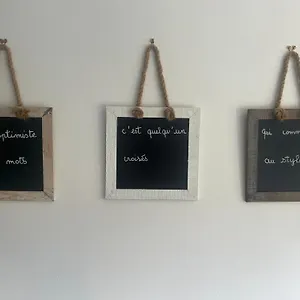 optimiste
mots
c'est quelqu'un
croisés
qui comm
au stylo